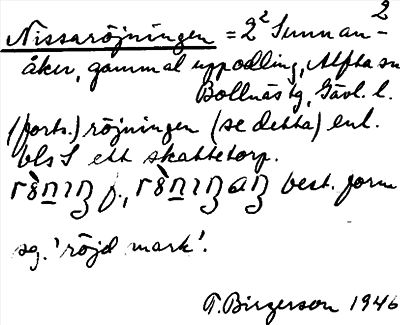 Nissaröjningen = 2² Sunnan-²
åker, gammal uppodling, Alfta sn
Bollnäs tg, Gävl. l.
(forts.) röjningen (se detta) enl.
bls S ett skattetorp.
f., best. form
sg. 'röjd mark'.
T. Birgerson 1946